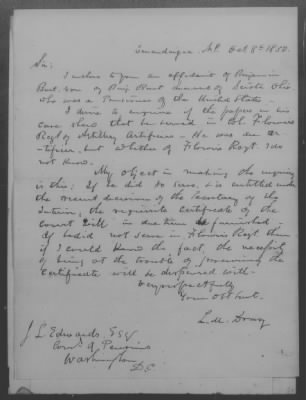 Canandaigua N.Y. Oct 8th 1850.
Sir:
I enclose to you an affidavit of Benjamin
Burt, son of Benj Burt deceased of Scioto Ohio
who was a Pensioner of the United States.
I desire to enquire if the papers in his
case show that he served in Col. Flowers
Regt of Artillery Artificers - He was an Ar-
tificer, but whether of Flowers Regt. I do
not know.
My object in making the enquiry
is this: If he did so serve, & is entitled under
the recent decision of the Secretary of the
Interior, the requisite certificate of the
court will in due time be furnished.
If he did not serve in Flowers Regt then
if I could know the fact, the necessity
of being at the trouble of procuring the
Certificate will be dispensed with.
Very respectfully
Your obt Servt.
J L Edwards Esq
Comr. of Pensions
Washington
D.C.